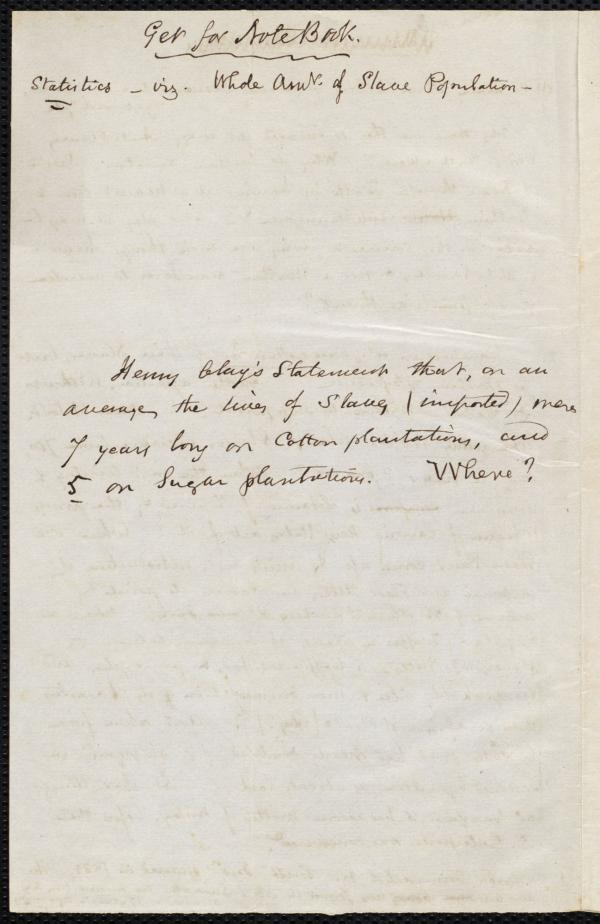 Get for Note Book.
Statistics - viz. Whole Amt. of Slave Population -
Henry Clay's Statement that, on an
average, the lives of Slaves (imported) were
7 years long on Cotton plantations, and
5 on Sugar plantations. Where?